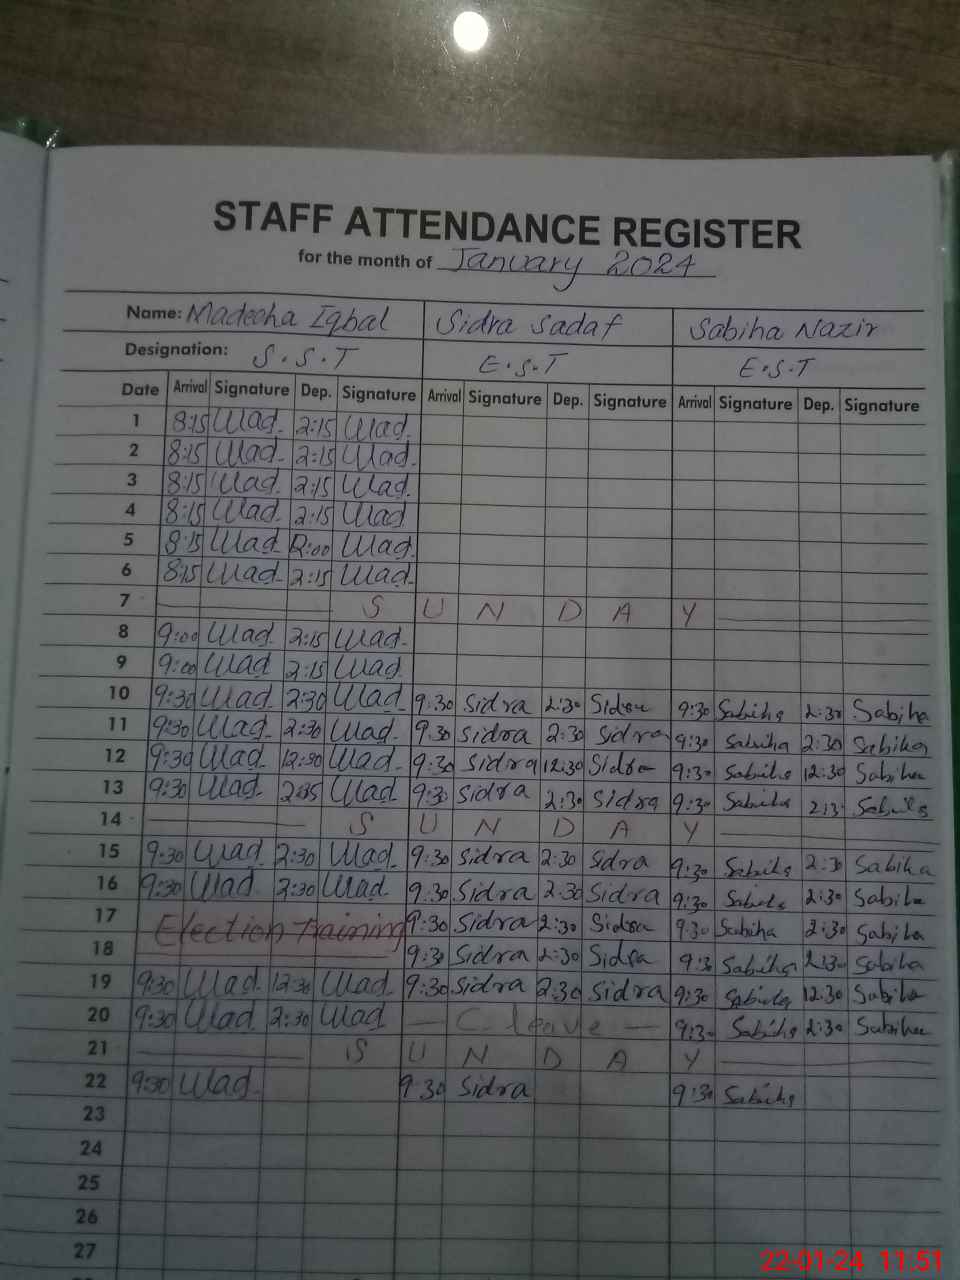 STAFF ATTENDANCE REGISTER
for the month of January 2024
Name: Madeeha Iqbal Sidra Sadaf Sabiha Nazir
Designation: S.S.T E.S.T E.S.T
Date Arrival Signature Dep. Signature Arrival Signature Dep. Signature Arrival Signature Dep. Signature
1 8:15 Mad. 2:15 Mad.
2 8:15 Mad. 2:15 Mad.
3 8:15 Mad. 2:15 Mad.
4 8:15 Mad. 2:15 Mad.
5 8:15 Mad. 12:00 Mad.
6 8:15 Mad. 2:15 Mad.
7 S U N D A Y
8 9:00 Mad. 2:15 Mad.
9 9:00 Mad 2:15 Mad.
10 9:30 Mad. 2:30 Mad. 9:30 Sidra 2:30 Sidra 9:30 Sabiha 2:30 Sabiha
11 9:30 Mad. 2:30 Mad. 9:30 Sidra 2:30 Sidra 9:30 Sabiha 2:30 Sabiha
12 9:30 Mad. 12:30 Mad. 9:30 Sidra 12:30 Sidra 9:30 Sabiha 12:30 Sabiha
13 9:30 Mad. Mad 9:30 Sidra 2:30 Sidra 9:30 Sabiha Sabiha
14 S U N D A Y
15 9:30 Mad. 2:30 Mad. 9:30 Sidra 2:30 Sidra 9:30 Sabiha 2:30 Sabiha
16 9:30 Mad. 2:30 Mad 9:30 Sidra 2:30 Sidra 9:30 Sabiha 2:30 Sabiha
17 Election Training 9:30 Sidra 2:30 Sidra 9:30 Sabiha 2:30 Sabiha
18 9:30 Sidra 2:30 Sidra 9:30 Sabiha 2:30 Sabiha
19 9:30 Mad. 12:30 Mad. 9:30 Sidra 2:30 Sidra 9:30 Sabiha 12:30 Sabiha
20 9:30 Mad 2:30 Mad C. leave 9:30 Sabiha 2:30 Sabiha
21 S U N D A Y
22 9:30 Mad. 9:30 Sidra 9:30 Sabiha
23
24
25
26
27
22-01-24 11:51